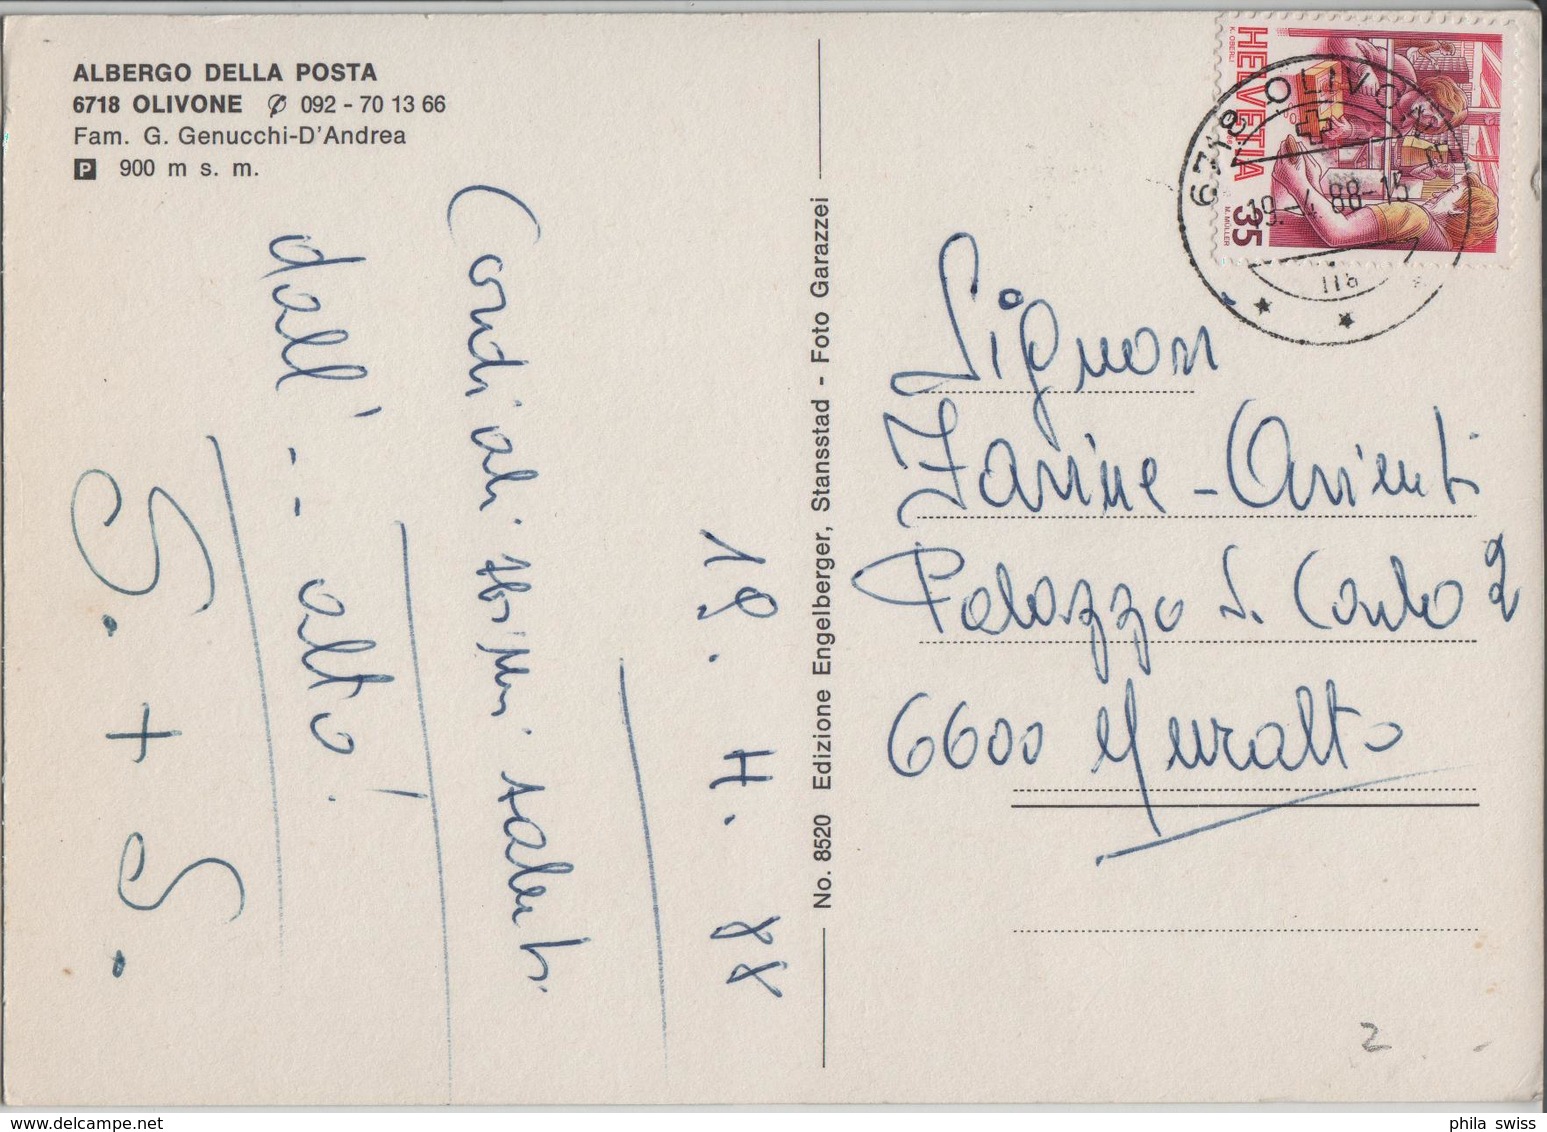 ALBERGO DELLA POSTA
6718 OLIVONE ✆ 092 - 70 13 66
Fam. G. Genucchi-D'Andrea
P 900 m s. m.
19. 4. 88
Cordialissimi saluti
dall' .. alto!
S. + S.
No. 8520 Edizione Engelberger, Stansstad - Foto Garazzei
HELVETIA
35
K. OBERLI
M. MÜLLER
6718 OLIVONE
19.-4.88-15
Signori
Farine-Arrienti
Palazzo S. Carlo 2
6600 Muralto
2
phila swiss